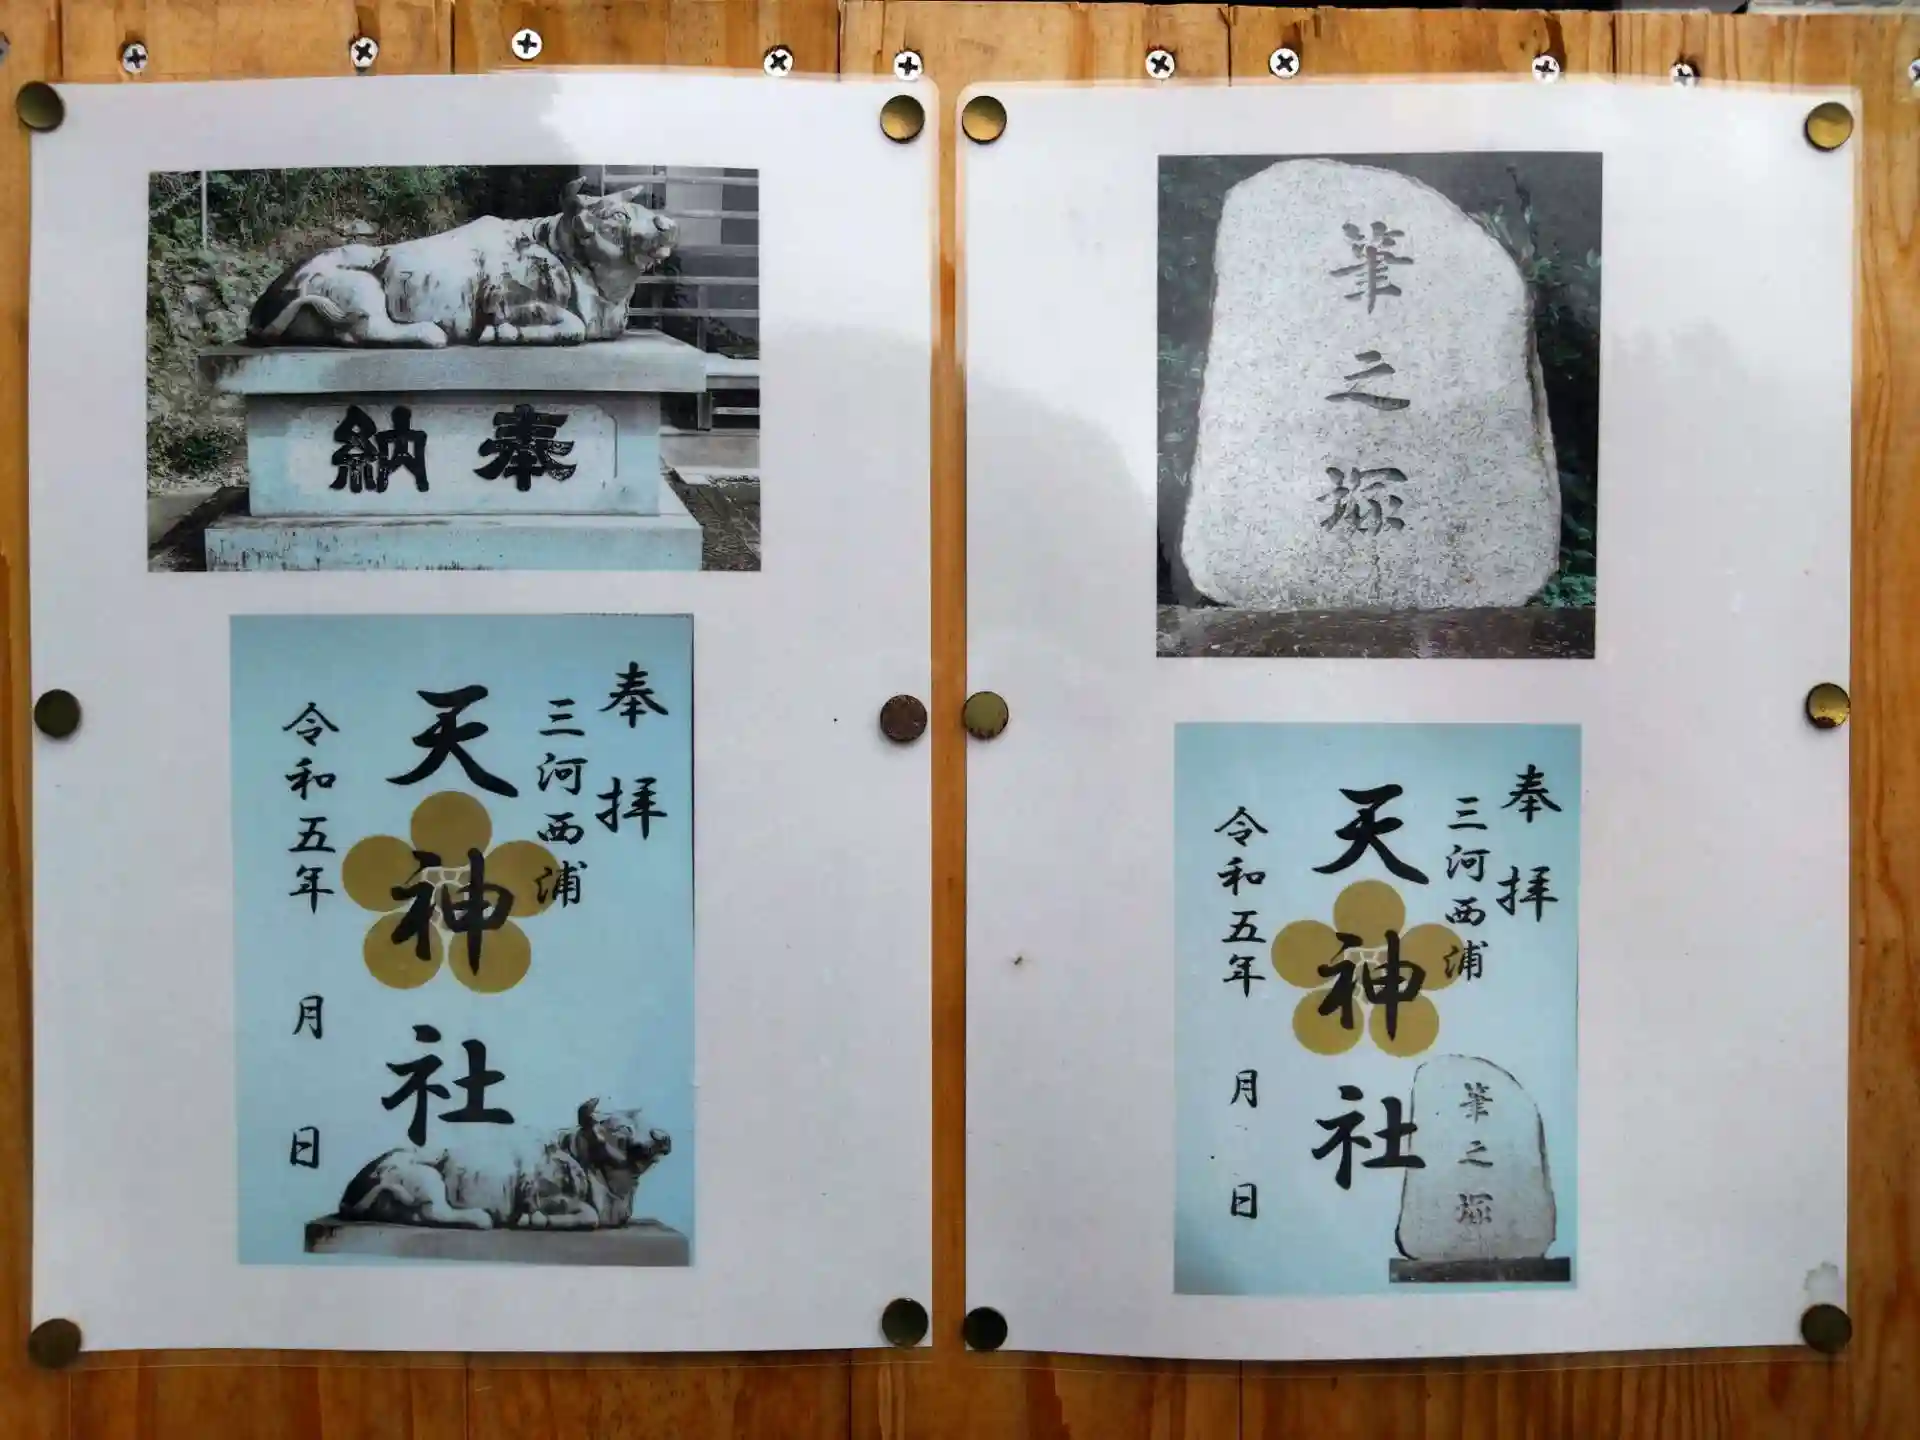 奉納
奉拝
三河西浦
天神社
令和五年 月 日
筆之塚
奉拝
三河西浦
天神社
令和五年 月 日
筆之塚